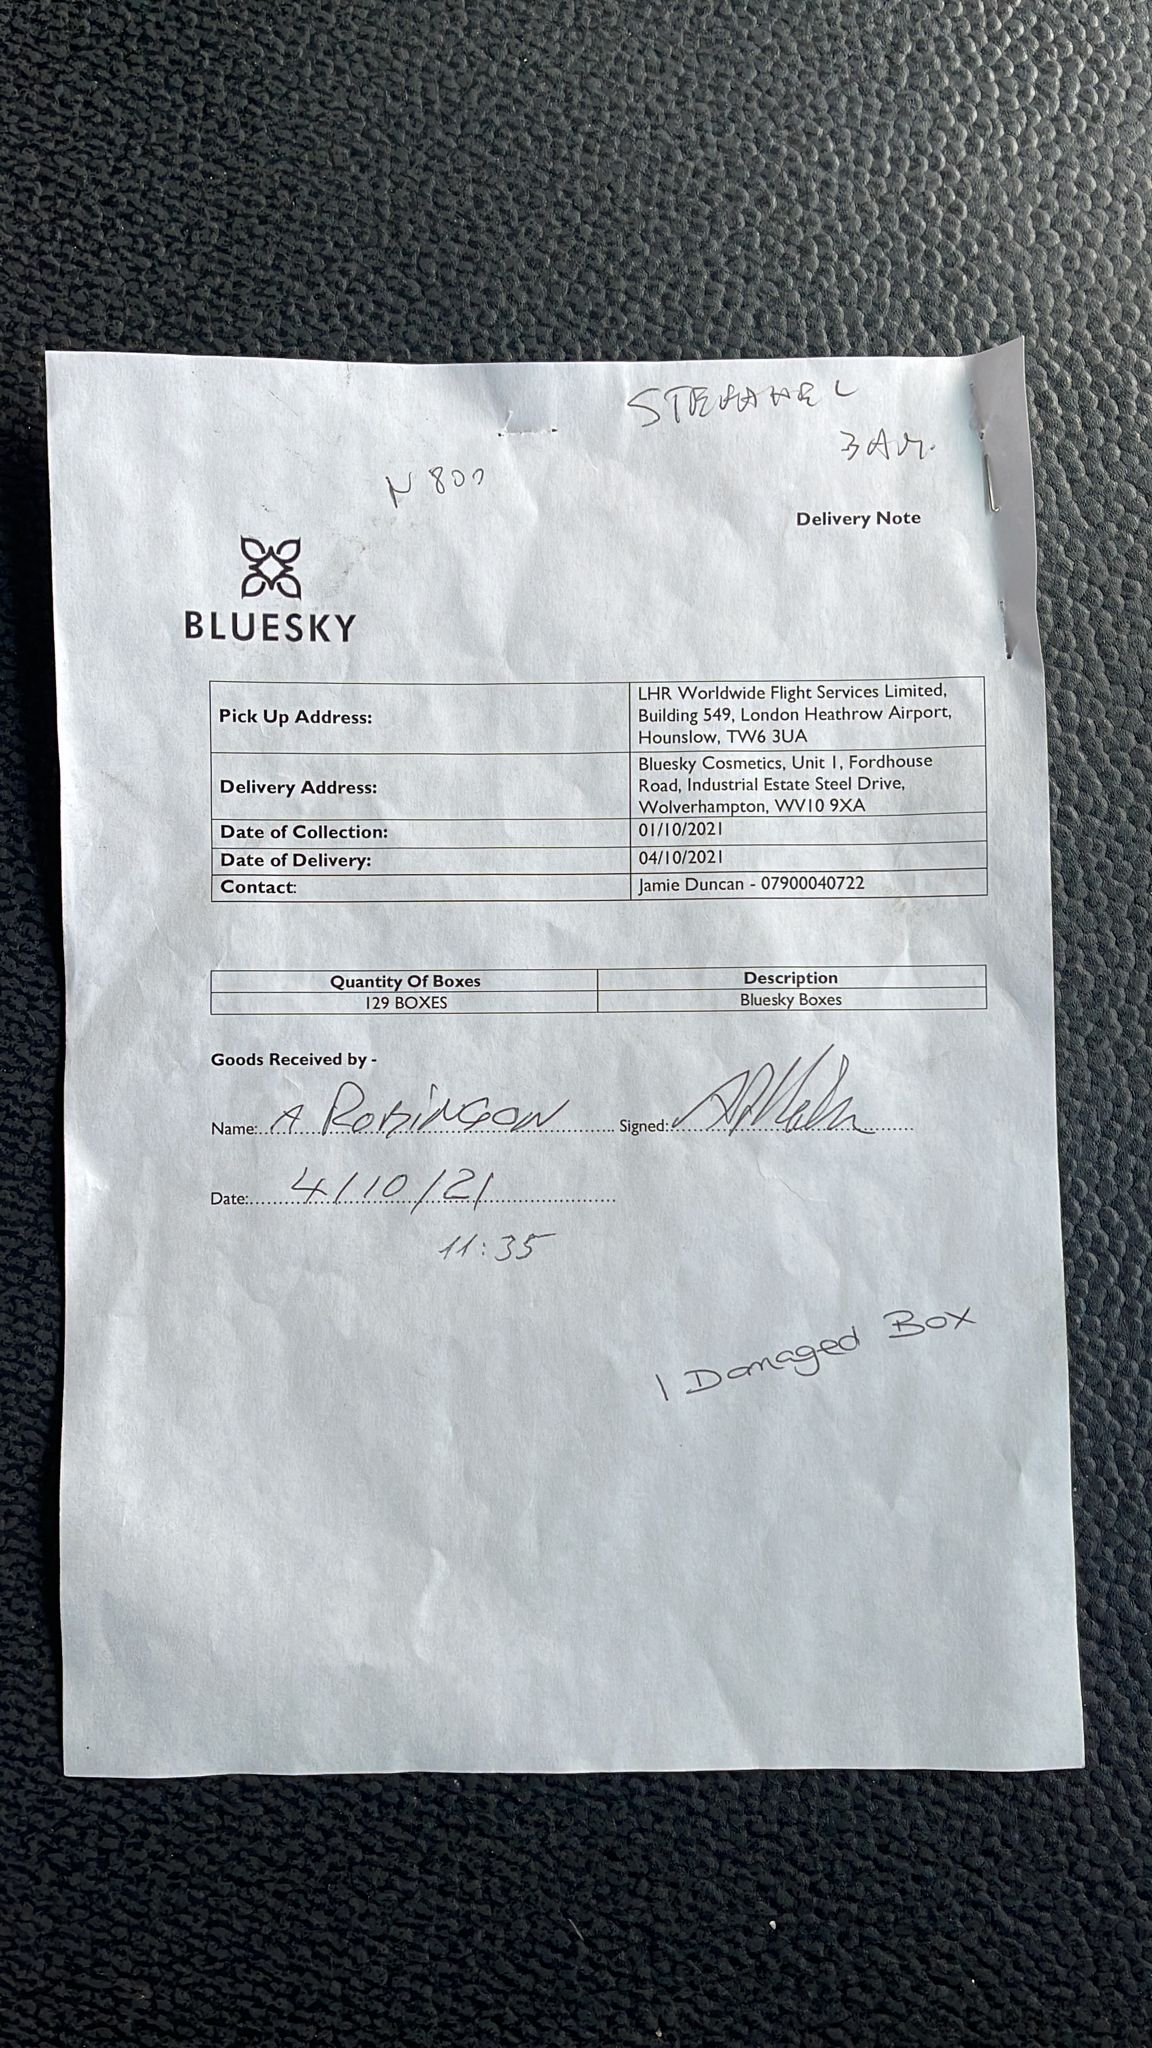 3 Am.
N 800
Delivery Note
BLUESKY
Pick Up Address:
LHR Worldwide Flight Services Limited,
Building 549, London Heathrow Airport,
Hounslow, TW6 3UA
Delivery Address:
Bluesky Cosmetics, Unit 1, Fordhouse
Road, Industrial Estate Steel Drive,
Wolverhampton, WV10 9XA
Date of Collection: 01/10/2021
Date of Delivery: 04/10/2021
Contact: Jamie Duncan - 07900040722
Quantity Of Boxes Description
129 BOXES Bluesky Boxes
Goods Received by -
Name: A ROBINSON Signed:
Date: 4/10/21
11:35
1 Damaged Box